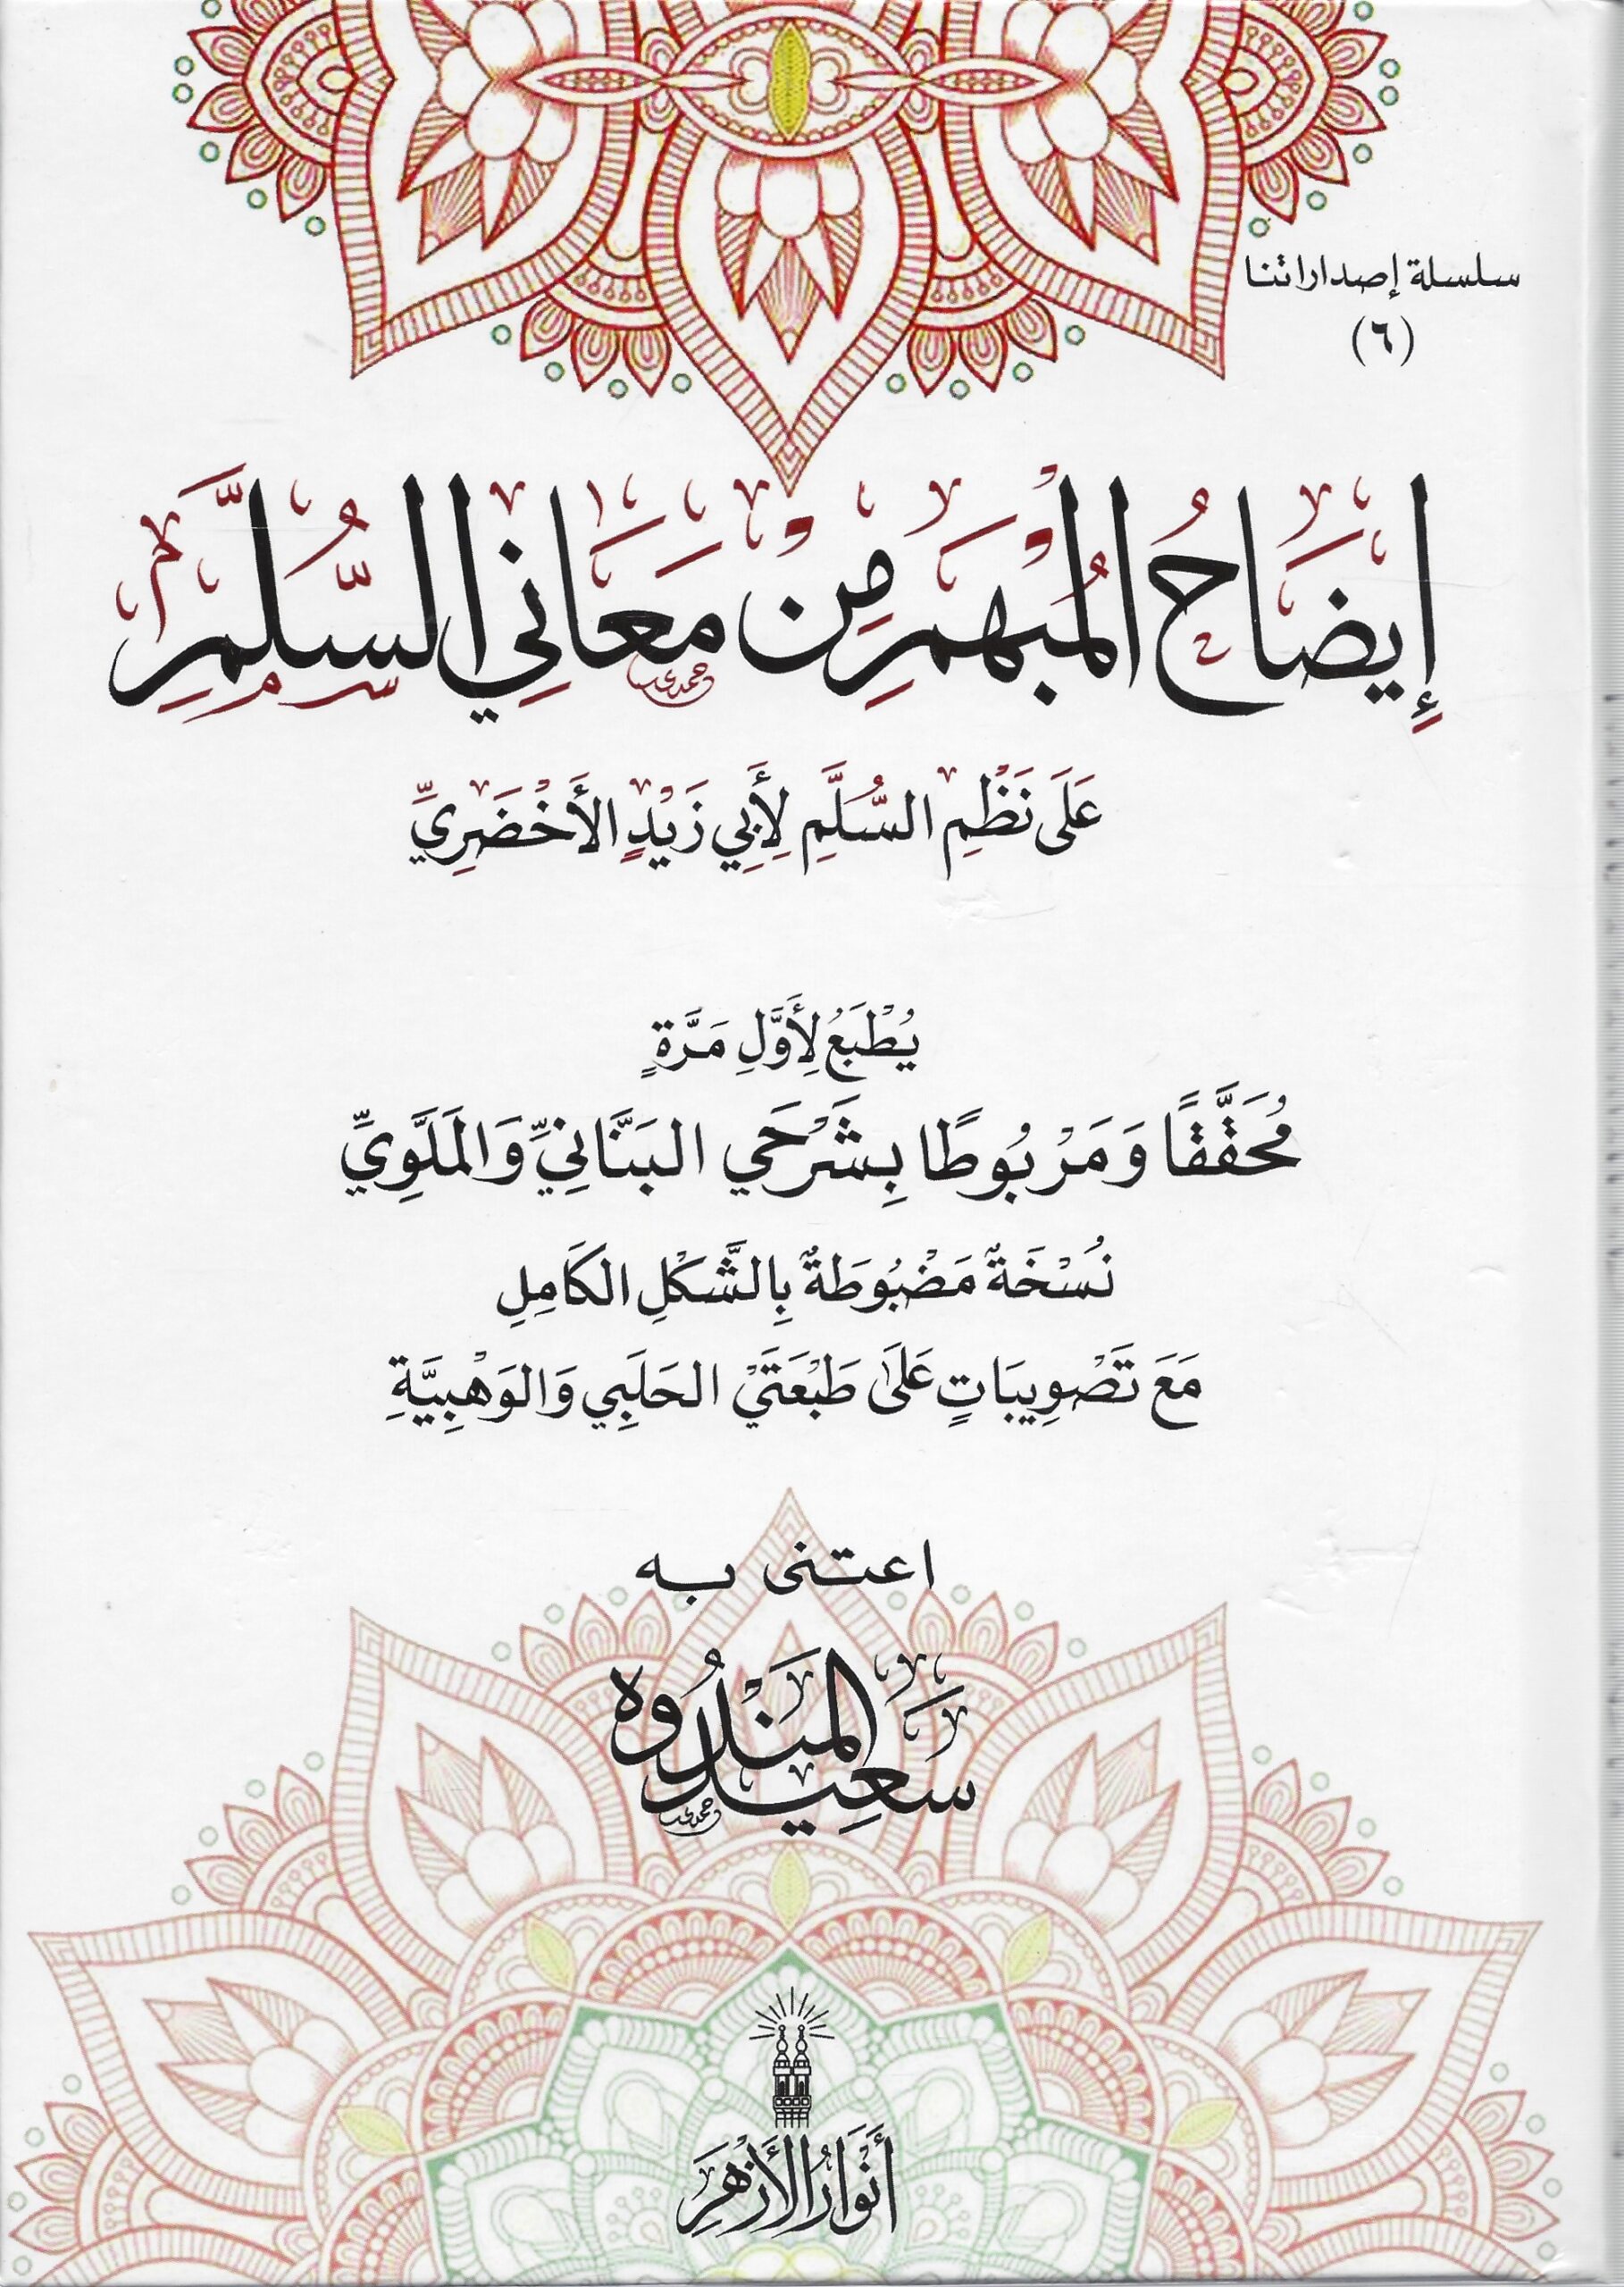 سلسلة إصداراتنا
(٦)
إِيضَاحُ المُبْهَمِ مِنْ مَعَانِي السُّلَّمِ
عَلَى نَظْمِ السُّلَّمِ لِأَبِي زَيْدٍ الأَخْضَرِيِّ
يُطْبَعُ لِأَوَّلِ مَرَّةٍ
مُحَقَّقًا وَمَرْبُوطًا بِشَرْحَيِ البَنَّانِيِّ وَالمَلَّوِيِّ
نُسْخَةٌ مَضْبُوطَةٌ بِالشَّكْلِ الكَامِلِ
مَعَ تَصْوِيبَاتٍ عَلَى طَبْعَتَيْ الحَلَبِي وَالوَهْبِيَّةِ
اعتنى به
سَعِيد المَنْدُوه
أَنْوَارُ الأَزْهَرِ